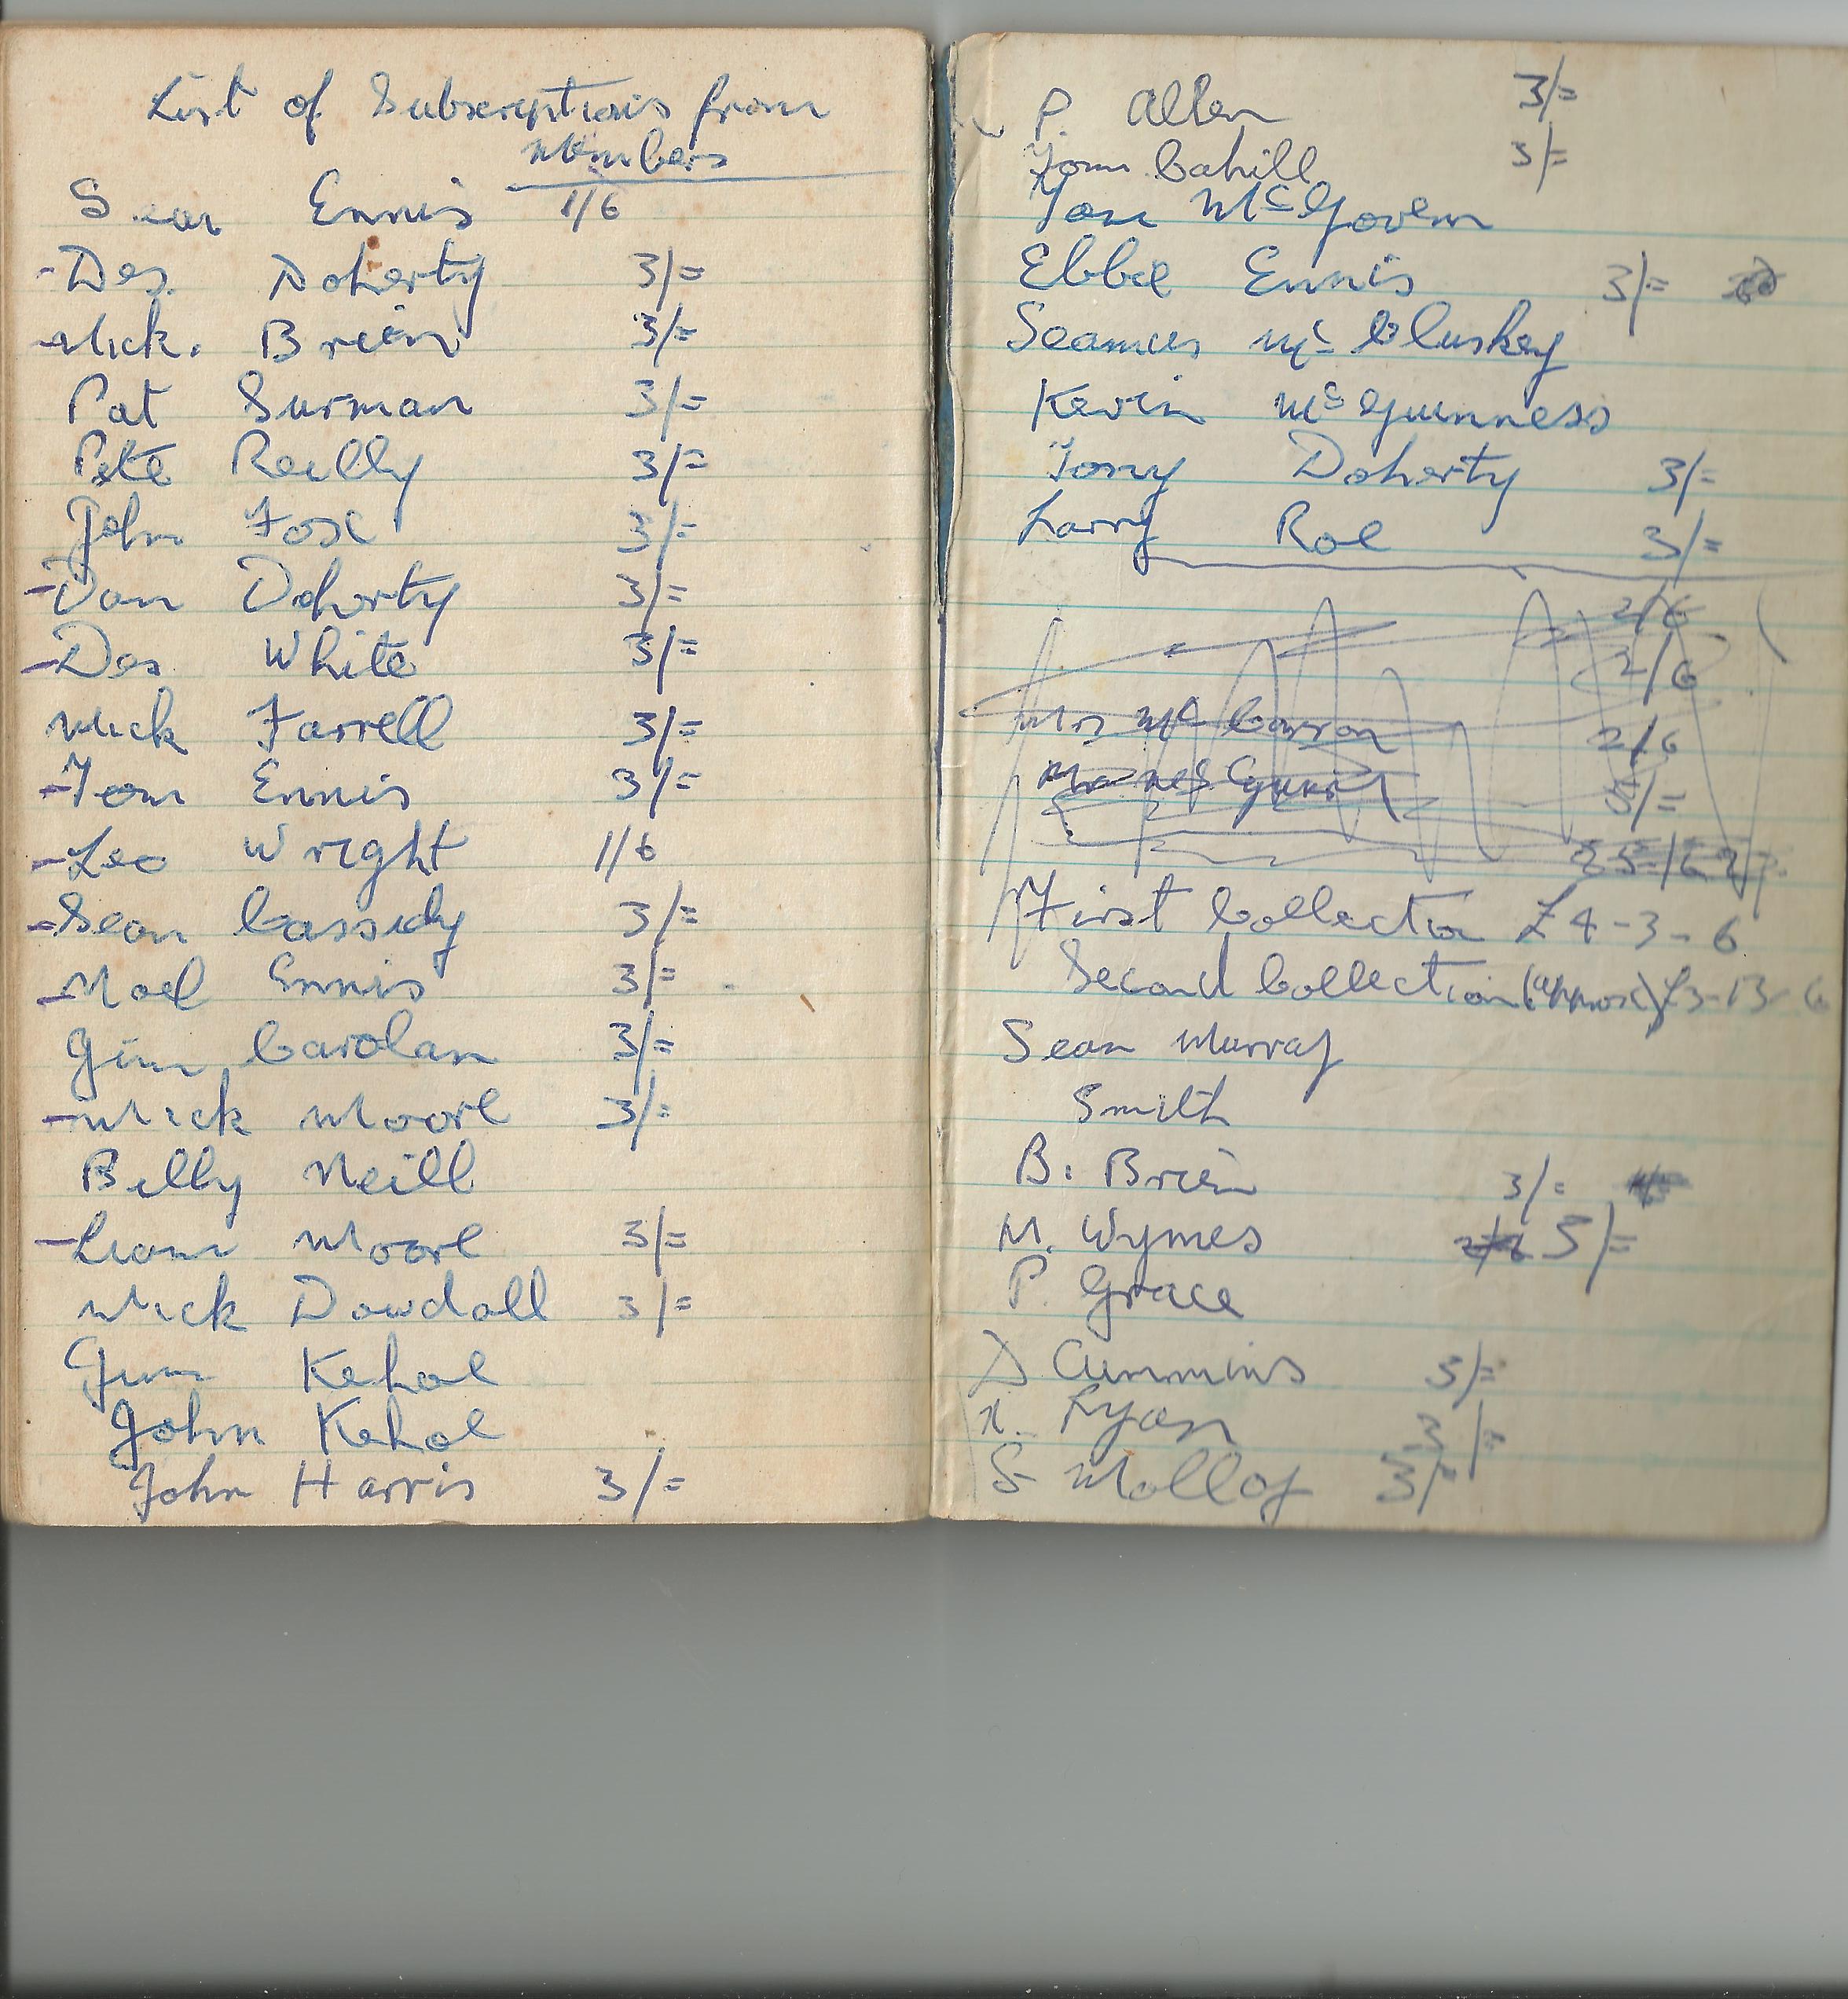 List of Subscriptions from
Members
Sean Ennis 1/6
-Des. Doherty 3/=
-Mick. Brien 3/=
Pat Surman 3/=
Pete Reilly 3/=
John Fox 3/=
-Dan Doherty 3/=
-Des White 3/=
Mick Farrell 3/=
-Tom Ennis 3/=
-Leo Wright 1/6
-Sean Cassidy 3/=
-Noel Ennis 3/=
Jim Carolan 3/=
-Mick Moore 3/=
Billy Neill
-Liam Moore 3/=
Mick Dowdall 3/=
Jim Kehoe
John Kehoe
John Harris 3/=
P. Allen 3/=
Tom Cahill 3/=
Tom McGovern
Ebbie Ennis 3/=
Seamus Mc Cluskey
Kevin McGuinness
Tony Doherty 3/=
Larry Roe 3/=
2/6
2/6
Mrs Mc Carron 2/6
3/=
First Collection £4-3-6
Second Collection (approx) £3-13-6
Sean Murray
Smith
B. Brien 3/=
M. Wymes 5/=
P. Grace
D Cummins 3/=
Lyan 3/=
S Molloy 3/=